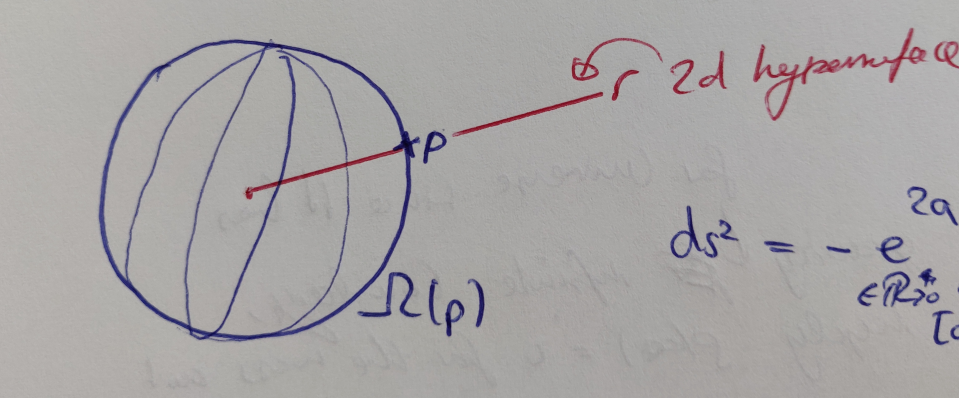 r 2d hypersurface
p
ds² = - e^2a
∈ℝ*>0
Ω(p)